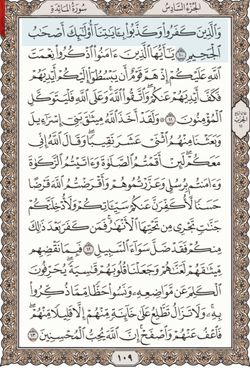 الجزء السادس سورة المائدة
والذين كفروا وكذبوا بآياتنا أولئك أصحاب
الجحيم ١٠ يا أيها الذين آمنوا اذكروا نعمت
الله عليكم إذ هم قوم أن يبسطوا إليكم أيديهم
فكف أيديهم عنكم واتقوا الله وعلى الله فليتوكل
المؤمنون ١١ ولقد أخذ الله ميثاق بني إسرائيل
وبعثنا منهم اثني عشر نقيبا وقال الله إني
معكم لئن أقمتم الصلوة وآتيتم الزكوة
وآمنتم برسلي وعزرتموهم وأقرضتم الله قرضا
حسنا لأكفرن عنكم سيئاتكم ولأدخلنكم
جنات تجري من تحتها الأنهار فمن كفر بعد ذلك
منكم فقد ضل سواء السبيل ١٢ فبما نقضهم
ميثاقهم لعناهم وجعلنا قلوبهم قاسية يحرفون
الكلم عن مواضعه ونسوا حظا مما ذكروا
به ولا تزال تطلع على خائنة منهم إلا قليلا منهم
فاعف عنهم واصفح إن الله يحب المحسنين ١٣
١٠٩